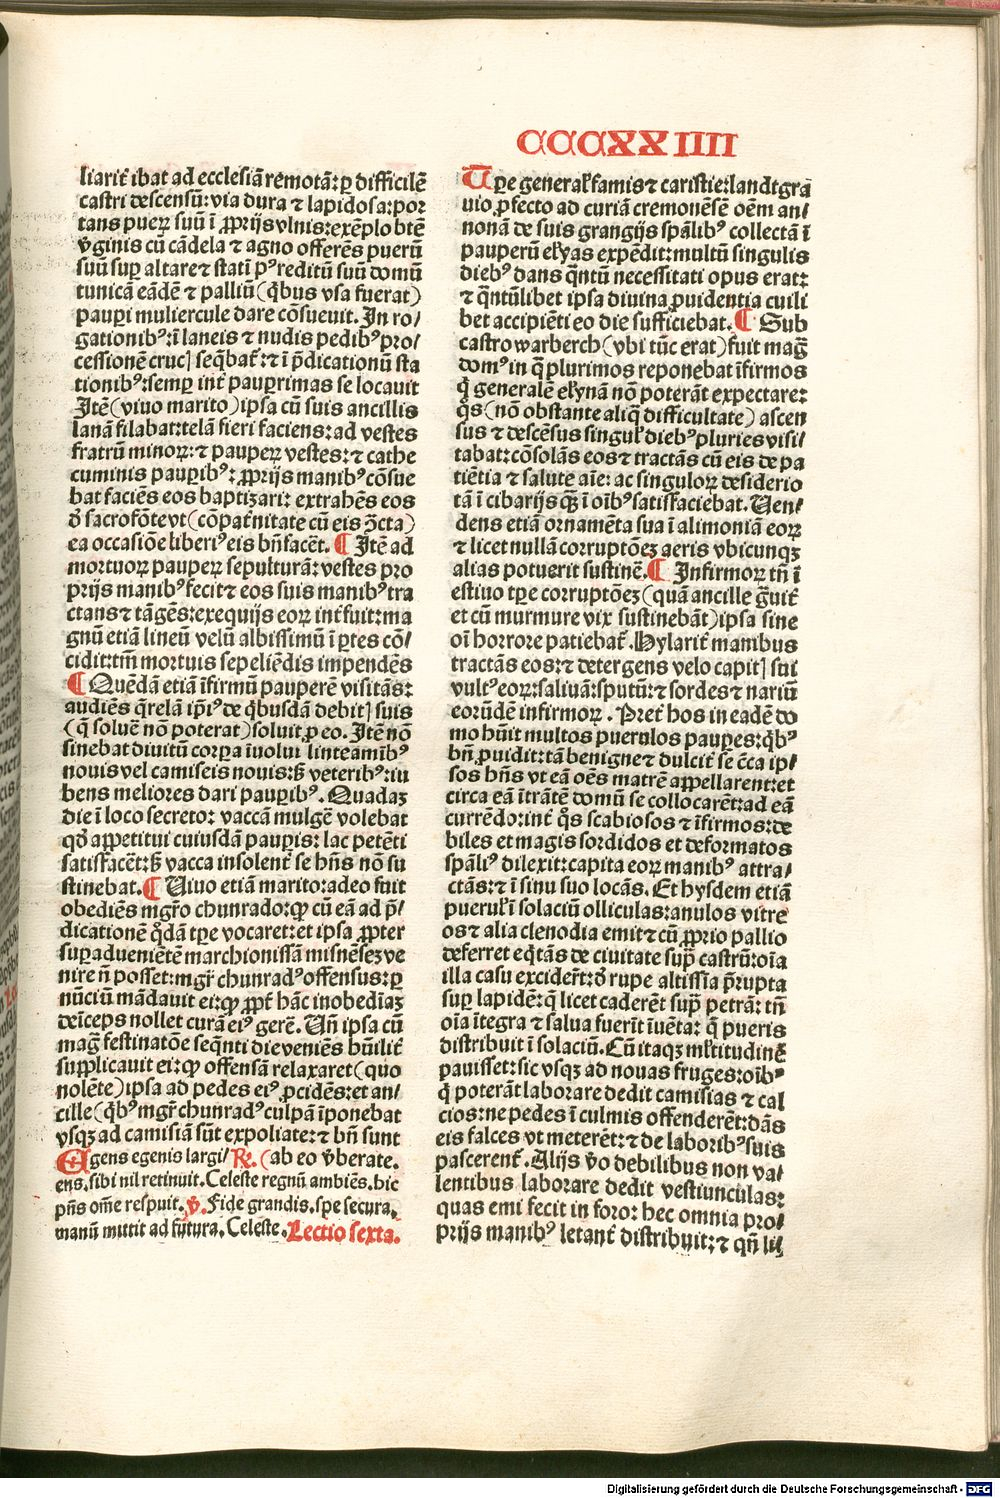 CCCXXIIII
liarit̄ ibat ad ecclesiā remotā: ꝑ difficilē
castri descensū: via dura ⁊ lapidosa: por
tans pueꝝ suū ī ꝓprijs vlnis: exēplo btē
v̄ginis cū cādela ⁊ agno offerēs puerū
suū suꝑ altare ⁊ statī pꝰ reditū suū domū
tunicā eādē ⁊ palliū (q̄bus vsa fuerat)
pauꝑi muliercule dare cōsueuit. In ro/
gationibꝰ: ī laneis ⁊ nudis pedibꝰ pro/
cessionē crucꝭ seq̄bat̄: ⁊ ī p̄dicationū sta
tionibꝰ: semꝑ int̄ pauꝑrimas se locauit
Itē (viuo marito) ipsa cū suis ancillis
lanā filabat: telā fieri faciens: ad vestes
fratrū minoꝝ: ⁊ pauꝑeꝝ vestes: ⁊ cathe
cuminis pauꝑibꝰ: ꝓprijs manibꝰ cōsue
bat faciēs eos baptizari: extrahēs eos
d̄ sacrofōte vt (cōpat̄nitate cū eis ꝯ̄cta)
ea occasiōe liberiꝰ eis bn̄facēt. ¶ Itē ad
mortuoꝝ pauꝑeꝝ sepulturā: vestes pro
prijs manibꝰ fecit ⁊ eos suis manibꝰ tra
ctans ⁊ tāgēs: exequijs eoꝝ int̄fuit: ma
gnū etiā lineū velū albissimū ī ꝑtes cō/
cidit: tm̄ mortuis sepeliēdis impendēs
¶ Quēdā etiā īfirmū pauperē visitās:
audiēs q̄relā ip̄iꝰ de q̄busdā debitꝭ suis
(q̄ soluē nō poterat) soluit ꝓ eo. Itē nō
sinebat diuitū corꝑa īuolui linteamībꝰ
nouis vel camiseis nouis: ß veteribꝰ: iu
bens meliores dari pauꝑibꝰ. Quadaꝫ
die ī loco secreto: vaccā mulgē volebat
qd̄ apꝑetitui cuiusdā pauꝑis: lac petēti
satisfacēt: ß vacca insolent̄ se hn̄s nō su
stinebat. ¶ Uiuo etiā marito: adeo fuit
obediēs mgr̄o chunrado: ꝙ cū eā ad p̄/
dicationē q̊dā tꝑe vocaret: et ipsa ꝓpter
suꝑaduenientē marchionissā misnēseꝫ ve
nire n̄ posset: mgr̄ chunradꝰ offensus: ꝑ
nūciū mādauit ei: ꝙ ꝓpt̄ hāc inobedīaꝫ
deīceps nollet curā eiꝰ gerē. Un̄ ipsa cū
maḡ festinatōe seq̄nti die veniēs hn̄ilit̄
supplicauit ei: ꝙ offensā relaxaret (quo
nolēte) ipsa ad pedes eiꝰ ꝓcidēs: et an/
cille (q̄bꝰ mgr̄ chunradꝰ culpā īponebat
vsqꝫ ad camisiā sūt expoliate: ⁊ bn̄ sunt
Egens egenis largi/ ℟. (ab eo v̄berate.
ens, sibi nil retinuit. Celeste regnū ambiēs, hic
pn̄s om̄e respuit. ℣. Fide grandis, spe secura,
manū mittit ad futura. Celeste. Lectio sexta.
Tꝑe general̄ famis ⁊ caristie: landtgra
uio, ꝓfecto ad curiā cremonēsē oēm an/
nonā de suis grangijs spālibꝰ collectā ī
pauperū elyas expēdit: multū singulis
diebꝰ dans q̄ntū necessitati opus erat:
⁊ q̄ntūlibet ipsa diuina ꝓuidentia cuili
bet accipiēti eo die sufficiebat. ¶ Sub
castro warberch (vbi tūc erat) fuit maḡ
domꝰ in q̄ plurimos reponebat īfirmos
q̊ generalē elynā nō poterāt expectare:
q̊s (nō obstante aliq̄ difficultate) ascen
sus ⁊ descēsus singul̄ diebꝰ pluries visi/
tabat: cōsolās eos ⁊ tractās cū eis de pa
tiētia ⁊ salute aīe: ac singuloꝝ desiderio
tā ī cibarijs qꝫ̄ ī oībꝰ satisfaciebat. Uen/
dens etiā ornamēta sua ī alimoniā eoꝝ
⁊ licet nullā corruptōeꝫ aeris vbicunqꝫ
alias potuerit sustinē. ¶ Infirmoꝝ tn̄ ī
estiuo tꝑe corruptōeꝫ (quā ancille g̃uit̄
et cū murmure vix sustinebāt) ipsa sine
oī horrore patiebat̄. Hylarit̄ manibus
tractās eos: ⁊ detergens velo capitꝭ sui
vultꝰ eoꝝ: saliuā: sputū: ⁊ sordes ⁊ nariū
eorūdē infirmoꝝ. Pret̄ hos in eadē do
mo hūit multos puerulos paupes: q̄bꝰ
bn̄ ꝓuidit: tā benigne ⁊ dulcit̄ se c̄ca ip/
sos hn̄s vt eā oēs matrē appellarent: et
circa eā ītrātē domū se collocarēt: ad eā
currēdo: int̄ q̊s scabiosos ⁊ īfirmos: de
biles et magis sordidos et deformatos
spāliꝰ dilexit: capita eoꝝ manibꝰ attra/
ctās: ⁊ ī sinu suo locās. Et hysdem etiā
puerul̄ī solaciū olliculas: anulos vitre
os ⁊ alia clenodia emit ⁊ cū ꝓprio pallio
deferret eq̄tās de ciuitate sup̄ castrū: oīa
illa casu exciderūt: d̄ rupe altissīa p̄rupta
suꝑ lapidē: q̄ licet caderēt sup̄ petrā: tn̄
oīa ītegra ⁊ salua fuerīt īuēta: q̄ pueris
distribuit ī solaciū. Cū itaqꝫ ml̄titudinē
pauisset: sic vsqꝫ ad nouas fruges: oībꝰ
q̊ poterāt laborare dedit camisias ⁊ cal
cios: ne pedes ī culmis offenderēt: dās
eis falces vt meterēt: ⁊ de laboribꝰ suis
pascerent̄. Alijs v̊o debilibus non va/
lentibus laborare dedit vestiunculas:
quas emi fecit in foro: hec omnia pro/
prijs manibꝰ letant̄ distribuit: ⁊ qn̄ li/
Digitalisierung gefördert durch die Deutsche Forschungsgemeinschaft - DFG